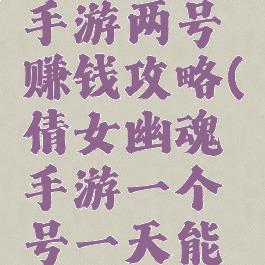 手游两号
赚钱攻略(
倩女幽魂
手游一个
号一天能